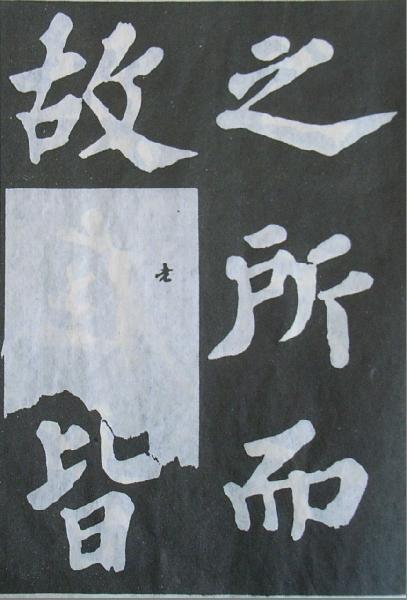 之所而
故老皆